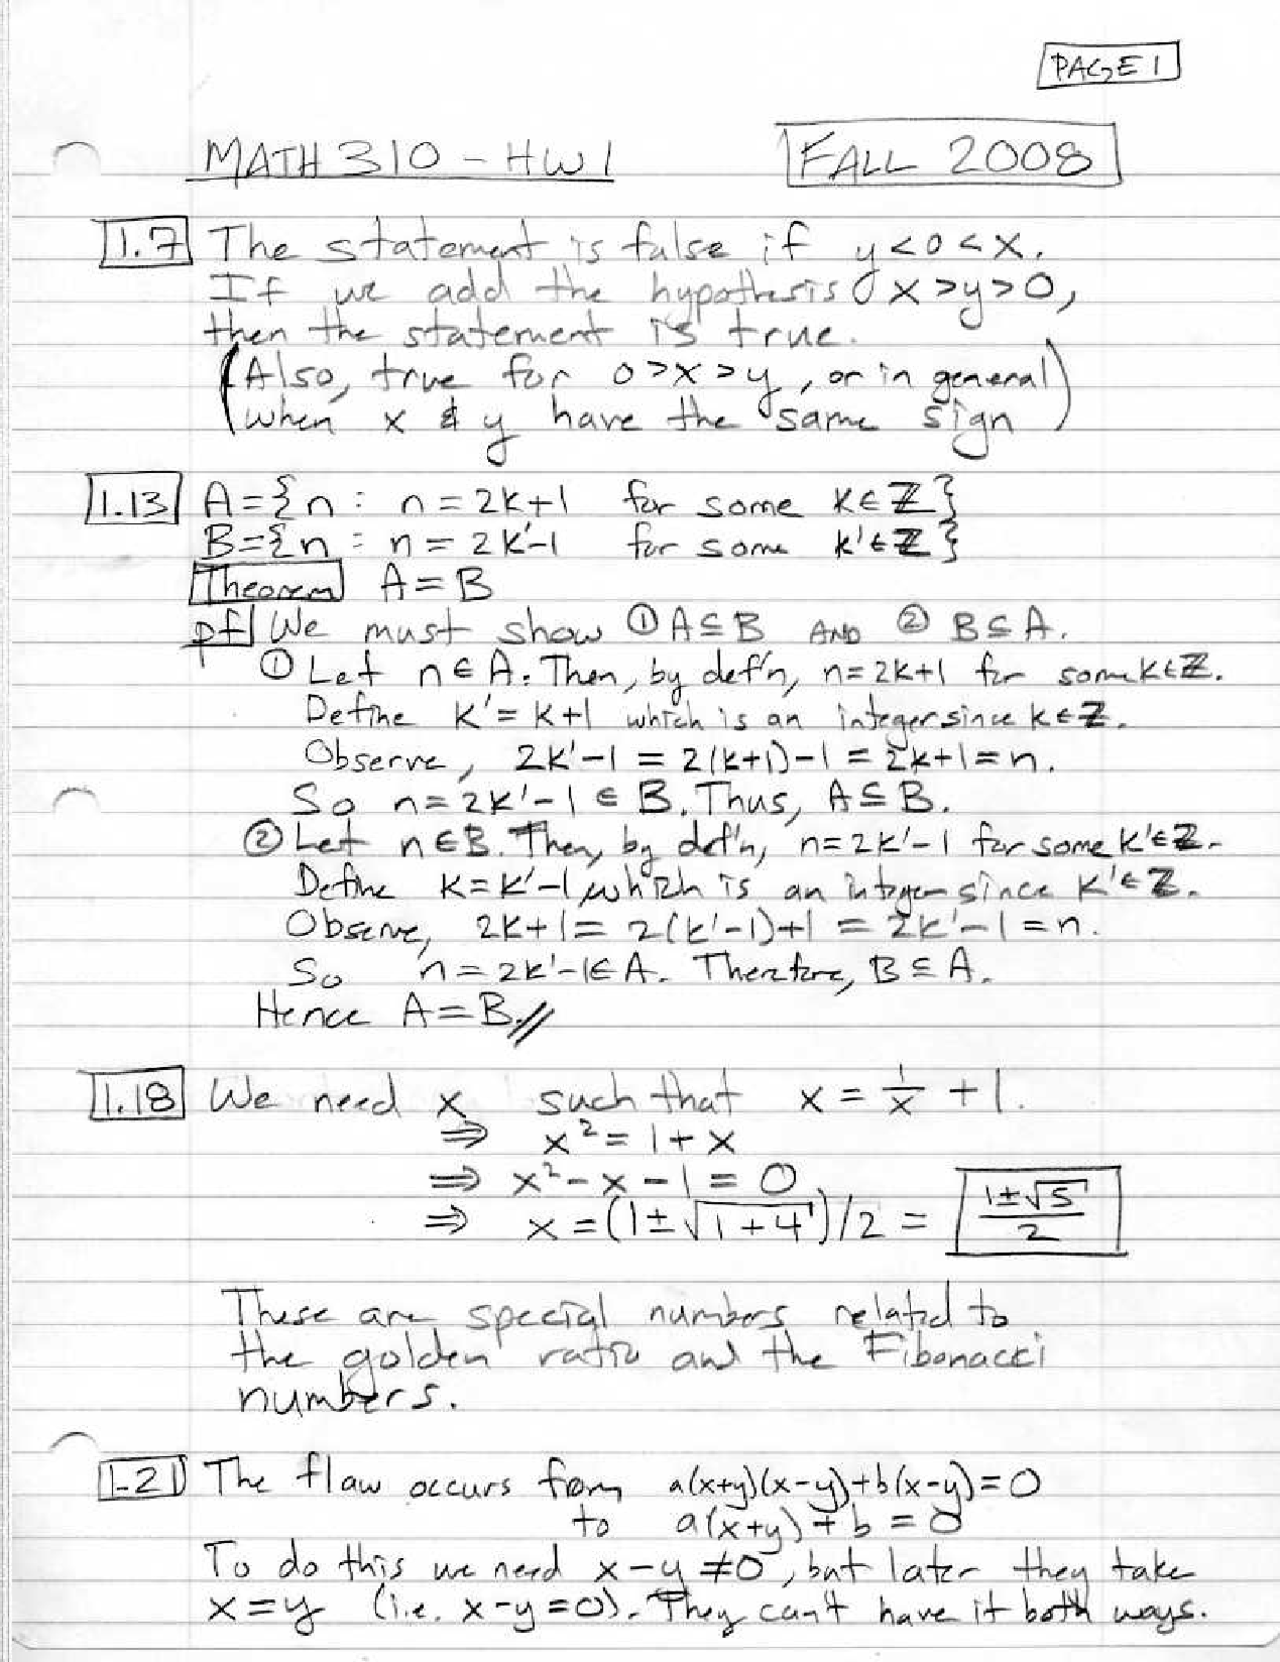 PAGE 1
MATH 310 - HW1 FALL 2008
1.7 The statement is false if y<0<x.
If we add the hypothesis x>y>0,
then the statement is true.
(Also, true for 0>x>y, or in general
when x & y have the same sign)
1.13 A={n : n=2k+1 for some k∈ℤ}
B={n : n=2k'-1 for some k'∈ℤ}
Theorem A=B
pf We must show ① A⊆B AND ② B⊆A.
① Let n∈A. Then, by def'n, n=2k+1 for some k∈ℤ.
Define k'=k+1 which is an integer since k∈ℤ.
Observe, 2k'-1 = 2(k+1)-1 = 2k+1=n.
So n=2k'-1 ∈ B. Thus, A⊆B.
② Let n∈B. Then, by def'n, n=2k'-1 for some k'∈ℤ.
Define k=k'-1, which is an integer since k'∈ℤ.
Observe, 2k+1= 2(k'-1)+1 = 2k'-1=n.
So n=2k'-1∈A. Therefore, B⊆A.
Hence A=B.//
1.18 We need x such that x = 1/x + 1.
⇒ x²=1+x
⇒ x²-x-1=0
⇒ x=(1±√(1+4))/2 = (1±√5)/2
These are special numbers related to
the golden ratio and the Fibonacci
numbers.
1.21 The flaw occurs from a(x+y)(x-y)+b(x-y)=0
to a(x+y)+b=0
To do this we need x-y≠0, but later they take
x=y (i.e. x-y=0). They can't have it both ways.